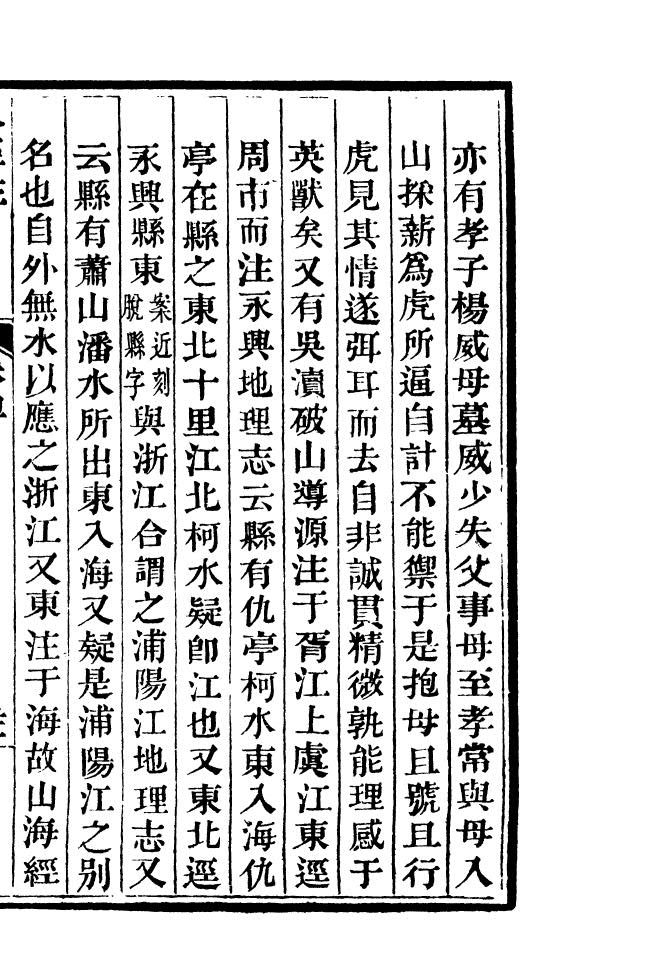 亦有孝子楊威母墓威少失父事母至孝常與母入
山採薪爲虎所逼自計不能禦于是抱母且號且行
虎見其情遂弭耳而去自非誠貫精微孰能理感于
英獸矣又有吳瀆破山導源注于胥江上虞江東逕
周市而注永興地理志云縣有仇亭柯水東入海仇
亭在縣之東北十里江北柯水疑卽江也又東北逕
永興縣東案近刻脫縣字與浙江合謂之浦陽江地理志又
云縣有蕭山潘水所出東入海又疑是浦陽江之別
名也自外無水以應之浙江又東注于海故山海經